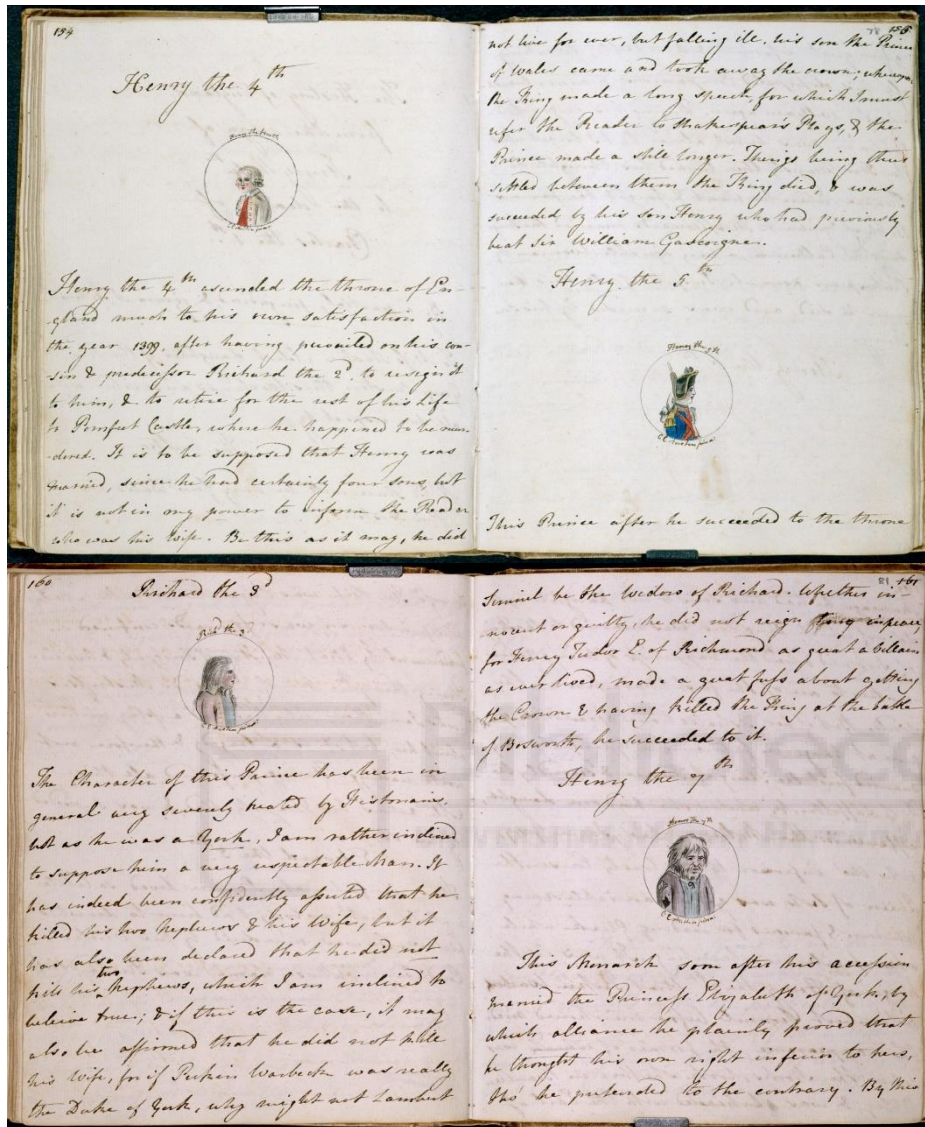 154
Henry the 4th
Henry the fourth
Henry the 4th ascended the throne of En-
-gland much to his own satisfaction in
the year 1399, after having prevailed on his cou-
-sin & predecessor Richard the 2d, to resign it
to him, & to retire for the rest of his Life
to Pomfret Castle, where he happened to be mur-
-dered. It is to be supposed that Henry was
married, since he had certainly four sons, but
it is not in my power to inform the Reader
who was his Wife. Be this as it may, he did
155
78
not live for ever, but falling ill, his son the Prince
of Wales came and took away the crown; whereupon
the King made a long speech, for which I must
refer the Reader to Shakespear's Plays, & the
Prince made a still longer. Things being thus
settled between them the King died, & was
succeeded by his son Henry who had previously
beat Sir William Gascoigne.
Henry the 5th
Henry the 5th
This Prince after he succeeded to the throne
160
Richard the 3d
Richd the 3d
The Character of this Prince has been in
general very severely treated by Historians,
but as he was a York, I am rather inclined
to suppose him a very respectable Man. It
has indeed been confidently asserted that he
killed his two Nephews & his Wife, but it
has also been declared that he did not
kill his two Nephews, which I am inclined to
beleive true; & if this is the case, it may
also be affirmed that he did not kill
his Wife, for if Perkin Warbeck was really
the Duke of York, why might not Lambert
161
81
Simnel be the Widow of Richard. Whether in-
nocent or guilty, he did not reign long in peace,
for Henry Tudor E. of Richmond as great a Villain
as ever lived, made a great fuss about getting
the Crown & having killed the King at the battle
of Bosworth, he succeeded to it.
Henry the 7th
Henry the 7th
This Monarch soon after his accession
married the Princess Elizabeth of York, by
which alliance he plainly proved that
he thought his own right inferior to hers,
tho' he pretended to the contrary. By this